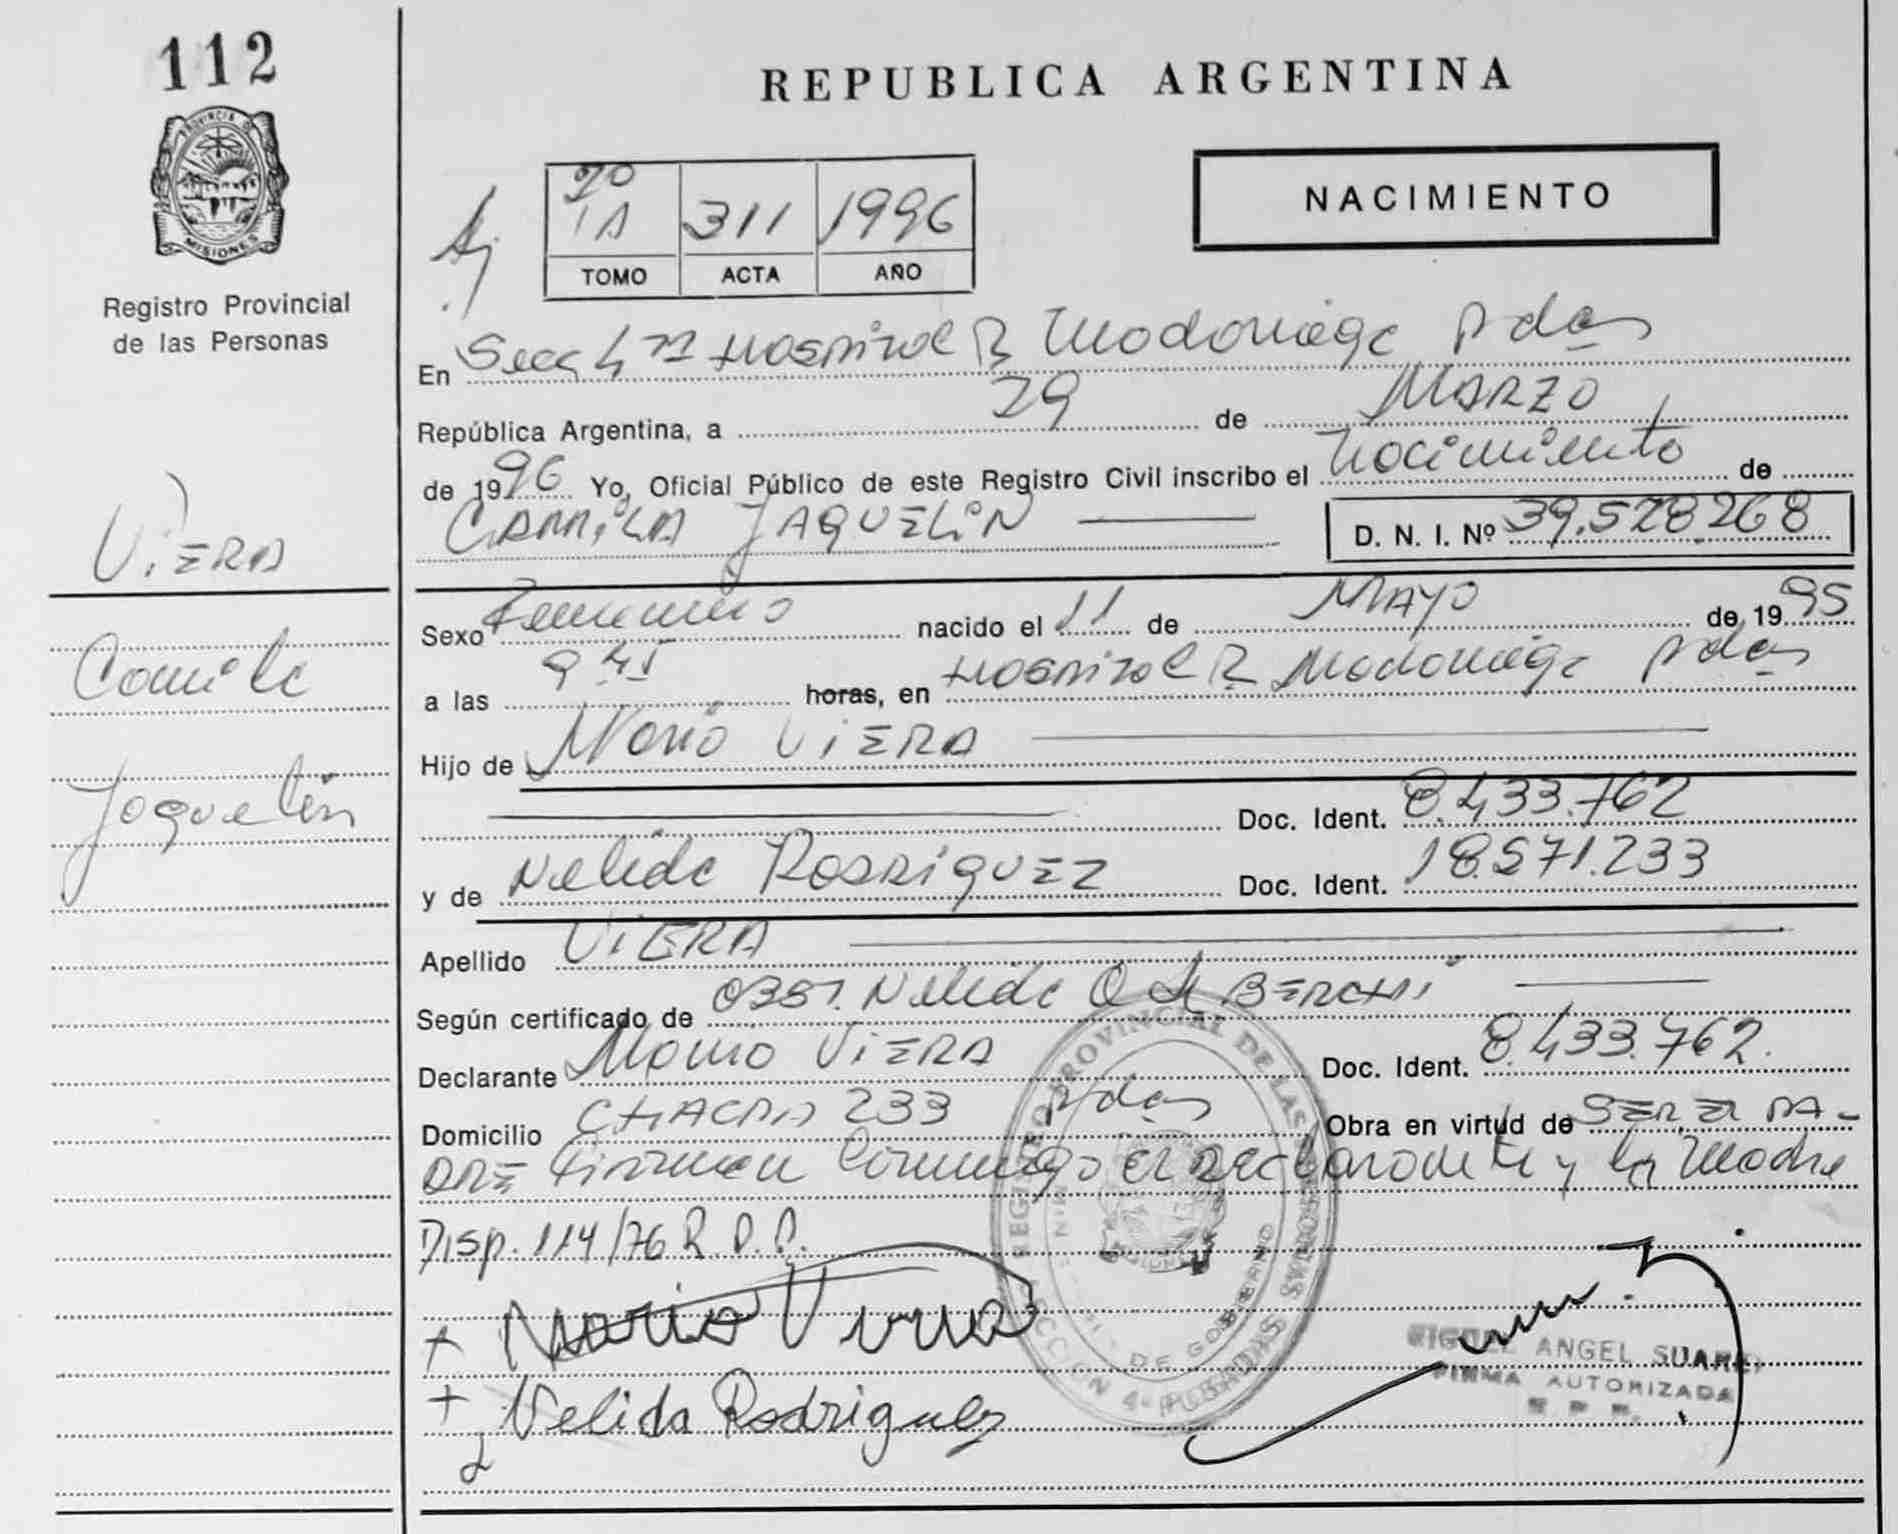 112
PROVINCIA DE MISIONES
Registro Provincial
de las Personas
VIERA
Camila
Jaquelin
REPUBLICA ARGENTINA
NACIMIENTO
2º
1A 311 1996
TOMO ACTA AÑO
En Secc 4ta Hospital R Madariaga Pdas
República Argentina, a 29 de MARZO
de 1996 Yo, Oficial Público de este Registro Civil inscribo el Nacimiento de
CAMILA JAQUELIN D. N. I. Nº 39.528.268
Sexo Femenino nacido el 11 de MAYO de 1995
a las 9 45 horas, en HOSPITAL R Madariaga Pdas
Hijo de Mario VIERA
Doc. Ident. 8.433.762
y de Nelida RODRIGUEZ Doc. Ident. 18.571.233
Apellido VIERA
Según certificado de OBST. Nelida O de BERCHI
Declarante Mario VIERA Doc. Ident. 8.433.762.
Domicilio CHACRA 233 Pdas Obra en virtud de SER EL PA-
DRE Firman Conmigo el Declarante y la Madre
Disp. 114/76 R.P.P.
+ Mario Viera
+ Nelida Rodriguez
REGISTRO PROVINCIAL DE LAS PERSONAS
SECCION 4ª POSADAS MISIONES
DE GOBIERNO
MIGUEL ANGEL SUAREZ
FIRMA AUTORIZADA